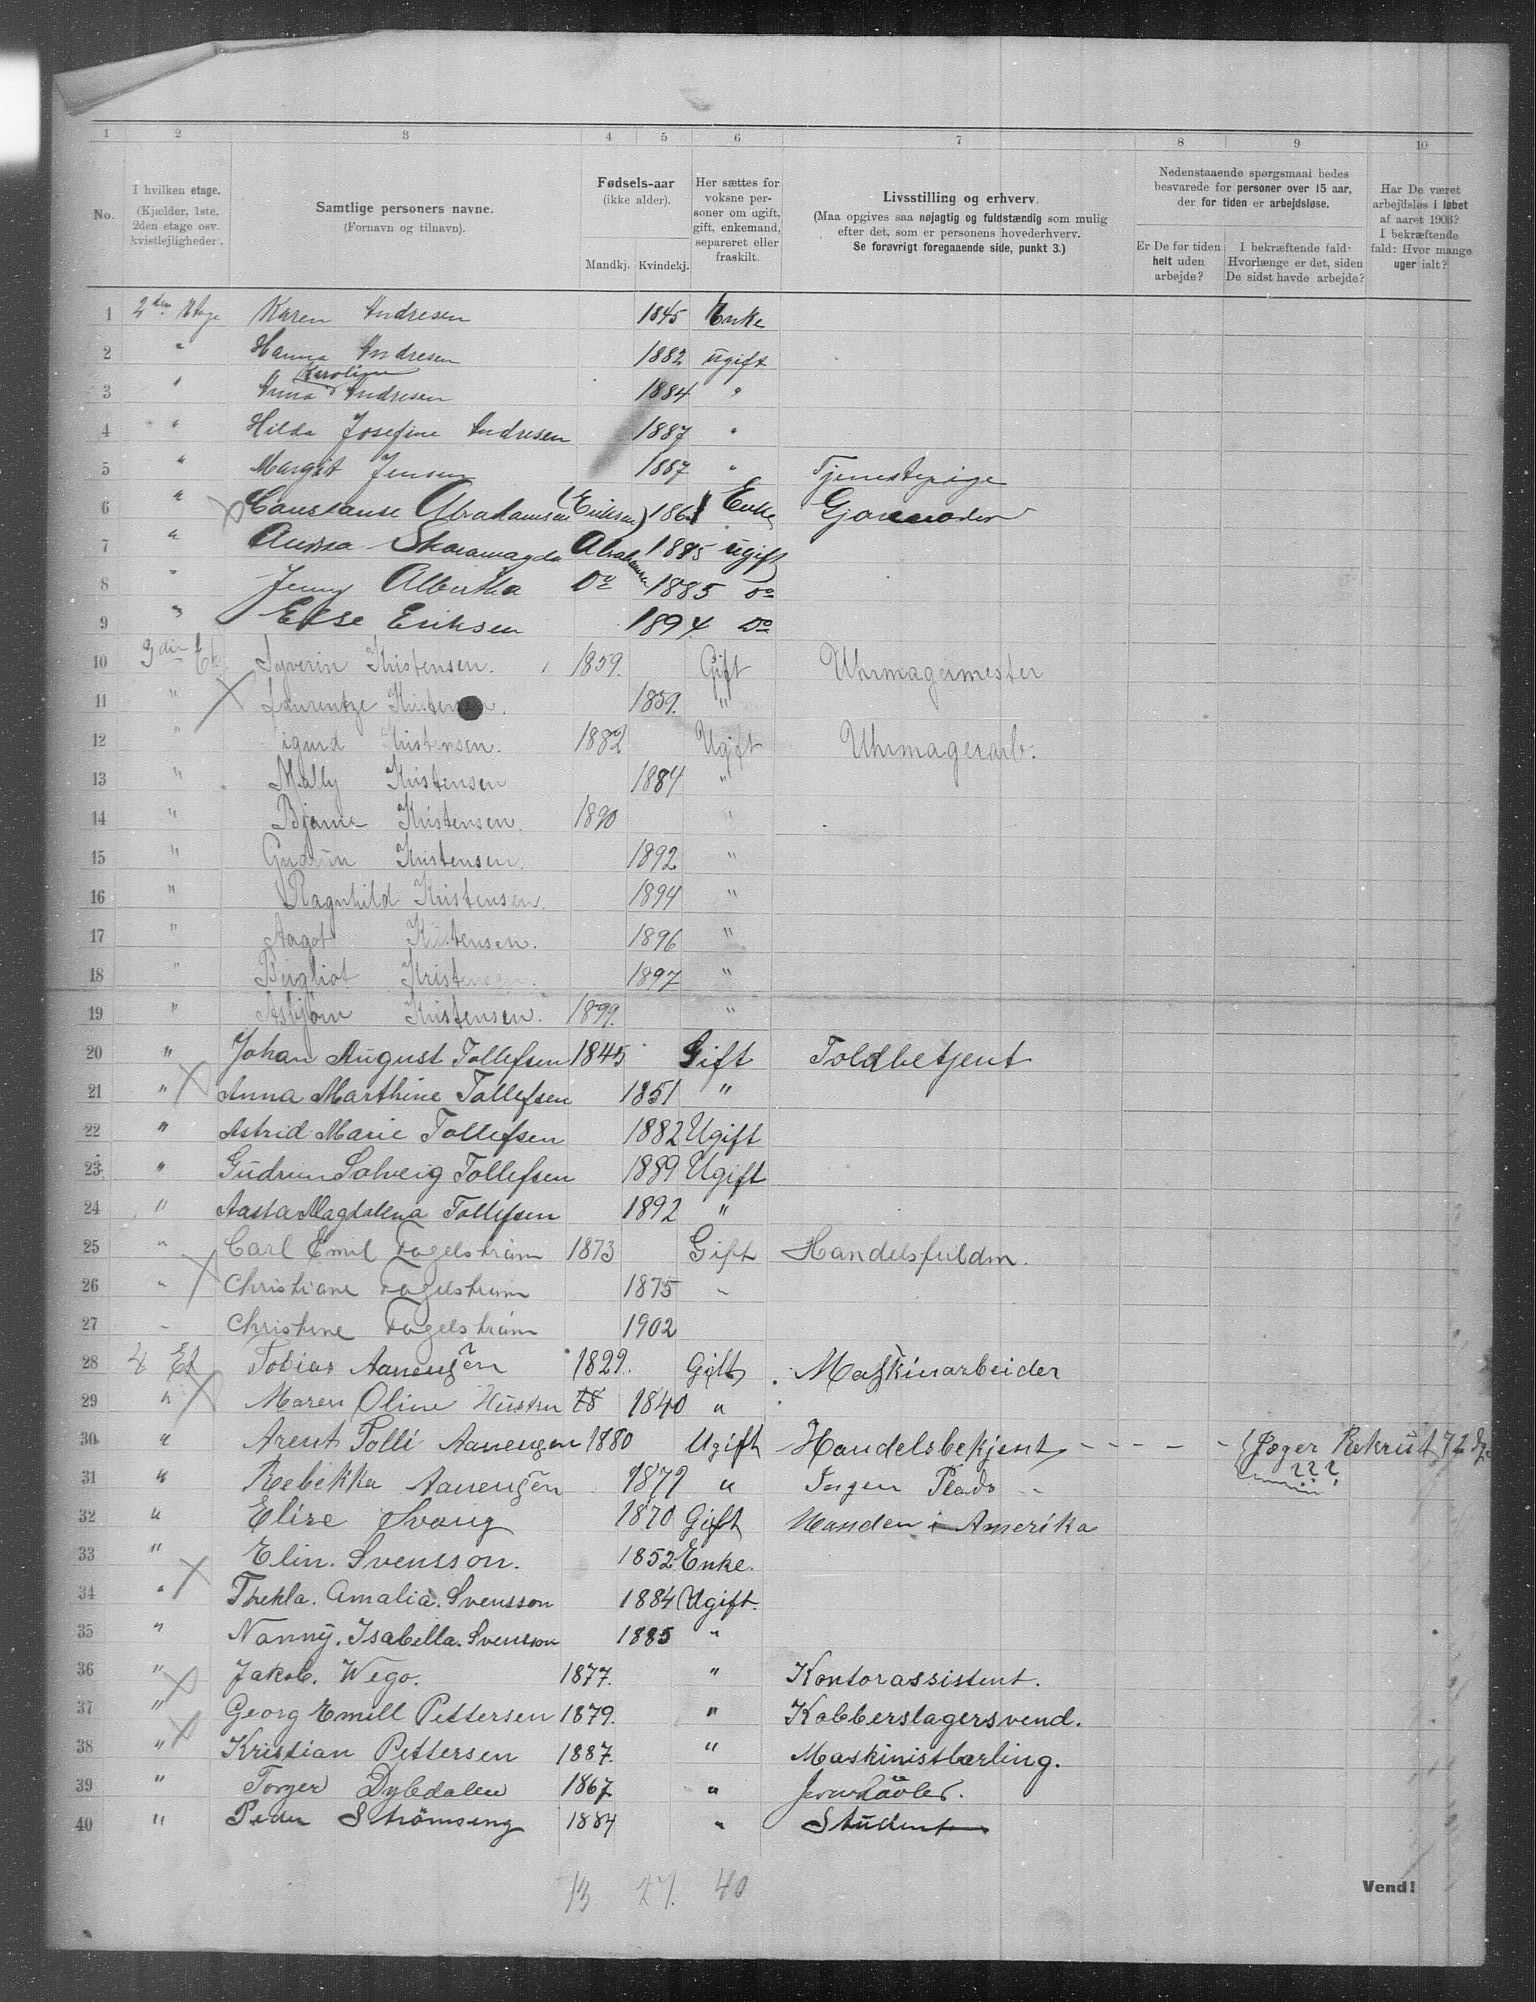 1 2 3 4 5 6 7 8 9 10
No.
I hvilken etage. (Kjælder, 1ste, 2den etage osv. kvistlejligheder.
Samtlige personers navne. (Fornavn og tilnavn).
Fødsels-aar (ikke alder). Mandkj. Kvindekj.
Her sættes for voksne personer om ugift, gift, enkemand, separeret eller fraskilt.
Livsstilling og erhverv. (Maa opgives saa nøjagtig og fuldstændig som mulig efter det, som er personens hovederhverv. Se forøvrigt foregaaende side, punkt 3.)
Nedenstaaende spørgsmaal bedes besvarede for personer over 15 aar, der for tiden er arbejdsløse.
Er De for tiden helt uden arbejde?
I bekræftende fald: Hvorlænge er det, siden De sidst havde arbejde?
Har De været arbejdsløs i løbet af aaret 1903? I bekræftende fald: Hvor mange uger ialt?
1 2den Etage Karen Andresen 1845 Enke
2 " Hanna Andresen 1882 ugift
3 " Anna Karoline Andresen 1884 "
4 " Hilda Josefine Andresen 1887 "
5 " Margit Jensen 1887 " Tjenestepige
6 " Constanse Abrahamsen (Eriksen) 186 Enke
7 " Anna Abrahamsen 1885 ugift
8 " Jenny Albertha Do 1885 Do
9 " Else Eriksen 1894 Do
10 3die Et Syverin Kristensen. 1859. Gift Uhrmagermester
11 " Laurentze Kristensen. 1859. "
12 " Sigurd Kristensen. 1882 Ugift Uhrmagerarb.
13 " Mally Kristensen 1884 "
14 " Bjarne Kristensen. 1890 "
15 " Gudrun Kristensen. 1892 "
16 " Ragnhild Kristensen. 1894 "
17 " Aagot Kristensen. 1896 "
18 " Bergliot Kristensen. 1897 "
19 " Asbjørn Kristensen. 1899. "
20 " Johan August Tollefsen 1845 Gift Toldbetjent
21 " Anna Marthine Tollefsen 1851 "
22 " Astrid Marie Tollefsen 1882 Ugift
23 " Gudrun Solveig Tollefsen 1889 Ugift
24 " Aasta Magdalena Tollefsen 1892 "
25 " Carl Emil Fogelstrøm 1873 Gift Handelsfuldm.
26 " Christiane Fogelstrøm 1875 "
27 " Christine Fogelstrøm 1902
28 4 Et Tobias Aanensen 1829. Gift Maskinarbeider
29 " Maren Oline Hustru 18 1840 "
30 " Arent Tolli Aanensen 1880 Ugift Handelsbetjent - - - - - Jæger Rekrut 72
31 " Rebekka Aanensen 1877 " ???
32 " Elise Svang 1870 Gift Manden i Amerika
33 " Elin. Svensson. 1852 Enke.
34 " Thekla. Amalia. Svensson 1884 Ugift.
35 " Nanny. Isabella. Svensson 1885 "
36 " Jakob. Wego. 1877. " Kontorassistent.
37 " Georg Emill Pettersen 1879. " Kobberslagersvend.
38 " Kristian Pettersen 1887. " Maskinistlærling.
39 " Torger Dybdalen 1867 "
40 " Peder Strømseng 1884 " Student
13 27. 40
Vend!